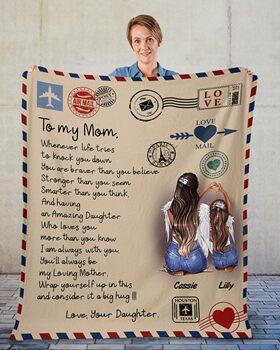 AIR MAIL
LOVE
LOVE
MAIL
To my Mom,
Whenever life tries
to knock you down
You are braver than you believe
Stronger than you seem
Smarter than you think,
And having
an Amazing Daughter
Who loves you
more than you know
I am always with you.
You'll always be
my Loving Mother.
Wrap yourself up in this
and consider it a big hug !!!
Love, Your Daughter.
Cassie
Lilly
HOUSTON
TEXAS